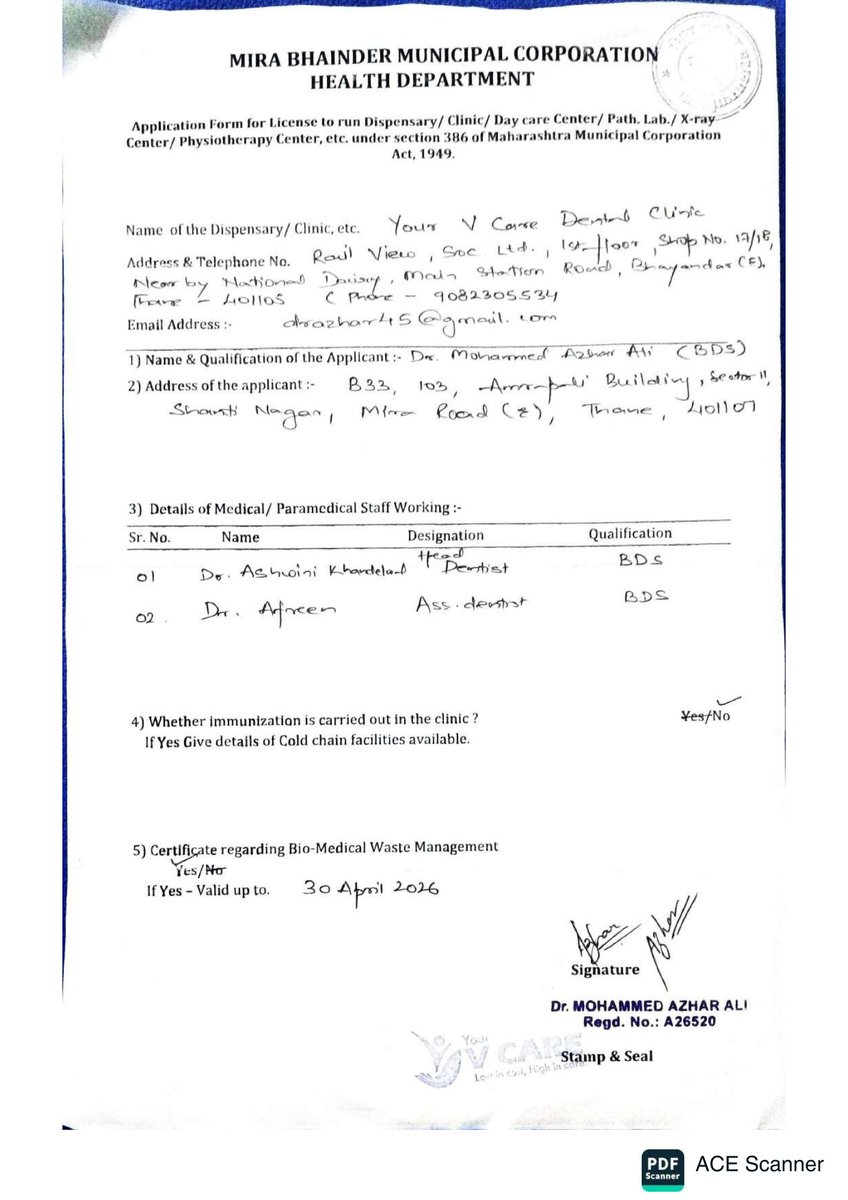 MIRA BHAINDER MUNICIPAL CORPORATION
HEALTH DEPARTMENT
Application Form for License to run Dispensary/ Clinic/ Day care Center/ Path. Lab./ X-ray
Center/ Physiotherapy Center, etc. under section 386 of Maharashtra Municipal Corporation
Act, 1949.
Name of the Dispensary/ Clinic, etc. Your V Care Dental Clinic
Address & Telephone No. Rail View, Soc Ltd., 1st floor, Shop No. 17/18,
Near by National Dairy, Main Station Road, Bhayandar (E).
Thane - 401105 ( Phone - 9082305534
Email Address :- drazhar45@gmail.com
1) Name & Qualification of the Applicant :- Dr. Mohammed Azhar Ali (BDS)
2) Address of the applicant :- B33, 103, Amrapali Building, Sector 11,
Shanti Nagar, Mira Road (E), Thane, 401107
3) Details of Medical/ Paramedical Staff Working :-
Sr. No. Name Designation Qualification
01 Dr. Ashwini Khandelwal Head Dentist BDS
02. Dr. Afreen Ass. dentist BDS
4) Whether immunization is carried out in the clinic ? Yes/No
If Yes Give details of Cold chain facilities available.
5) Certificate regarding Bio-Medical Waste Management
Yes/No
If Yes – Valid up to. 30 April 2026
Azhar Azhar
Signature
Dr. MOHAMMED AZHAR ALI
Regd. No.: A26520
Your
V CARE
Low in cost, High in care.
Stamp & Seal
PDF Scanner ACE Scanner